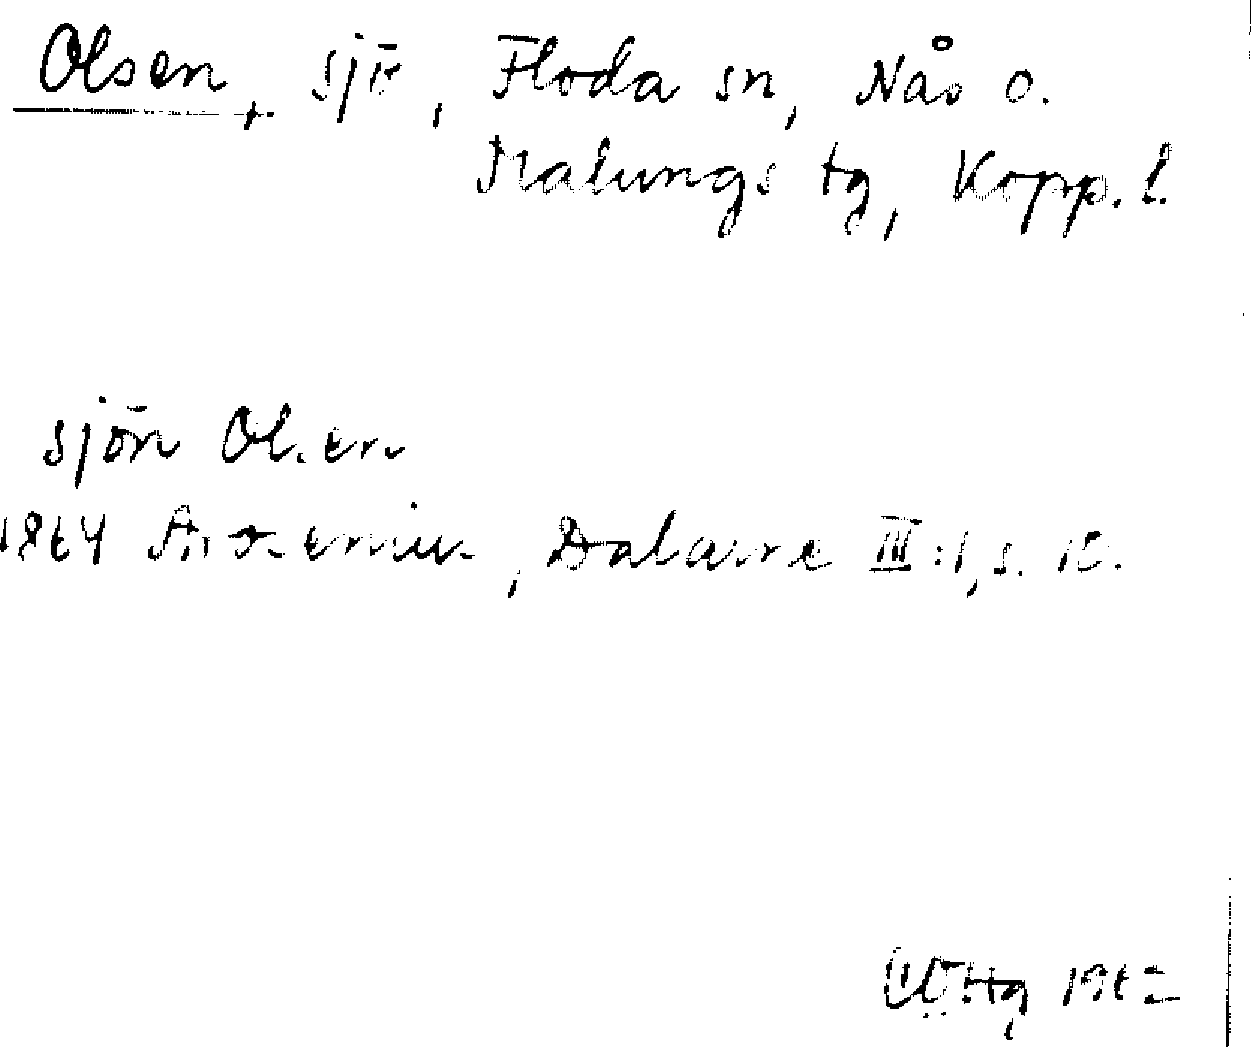 Olsen, sjö, Floda sn, Nås o.
Malungs tg, Kopp. l.
sjön Olsen
1864 Arosenius, Dalarne III:1, s. 10.
1962